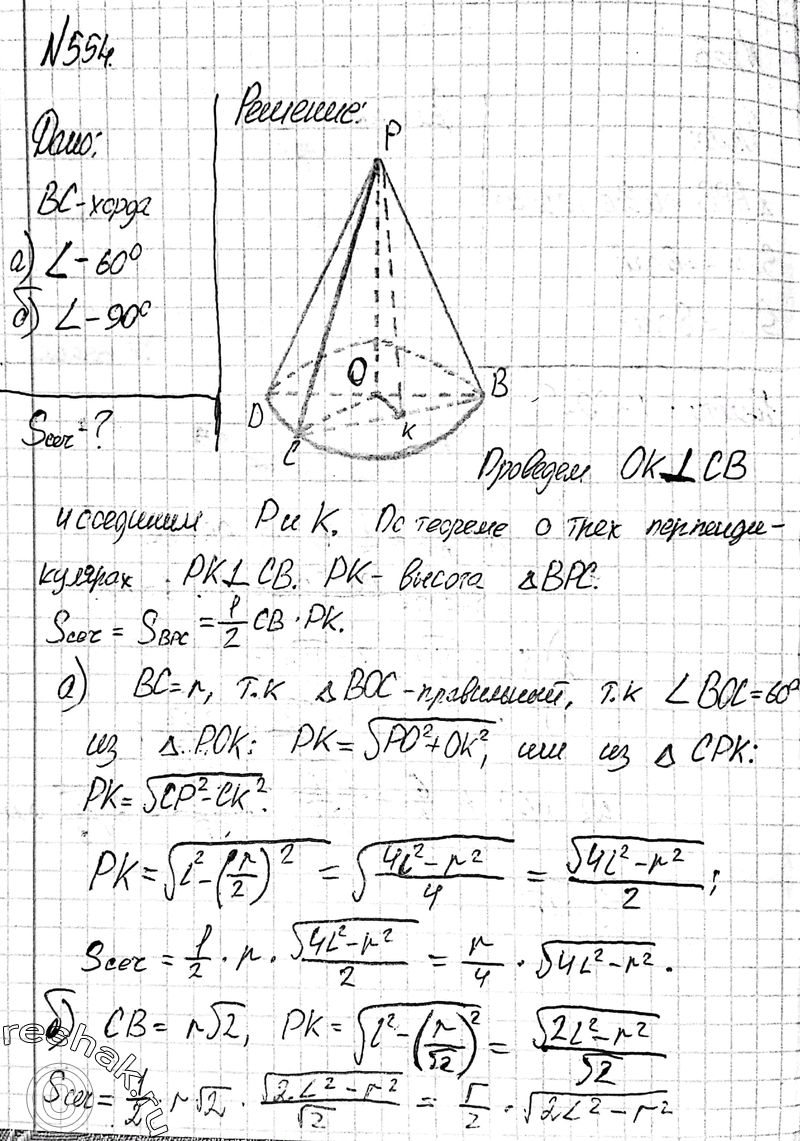 N554.
Дано:
BC-хорда
а) ∠-60⁰
б) ∠-90⁰
Sсеч-?
Решение:
P
O
D
B
C
K
Проведем OK⊥CB
и соединим P и K. По теореме о трех перпенди-
кулярах PK⊥CB. PK- высота △BPC.
Sсеч = S_BPC = 1/2 CB · PK.
а) BC=r, т.к △BOC-правильный, т.к ∠BOC=60⁰
из △POK: PK=√(PO²+OK²), или из △CPK:
PK=√(CP²-CK²).
PK=√(L²-(r/2)²) = √((4L²-r²)/4) = √(4L²-r²)/2;
Sсеч = 1/2 · r · √(4L²-r²)/2 = r/4 · √(4L²-r²).
б) CB = r√2, PK = √(L²-(r/√2)²) = √(2L²-r²)/√2
Sсеч = 1/2 · r√2 · √(2L²-r²)/√2 = r/2 · √(2L²-r²)
reshak.ru